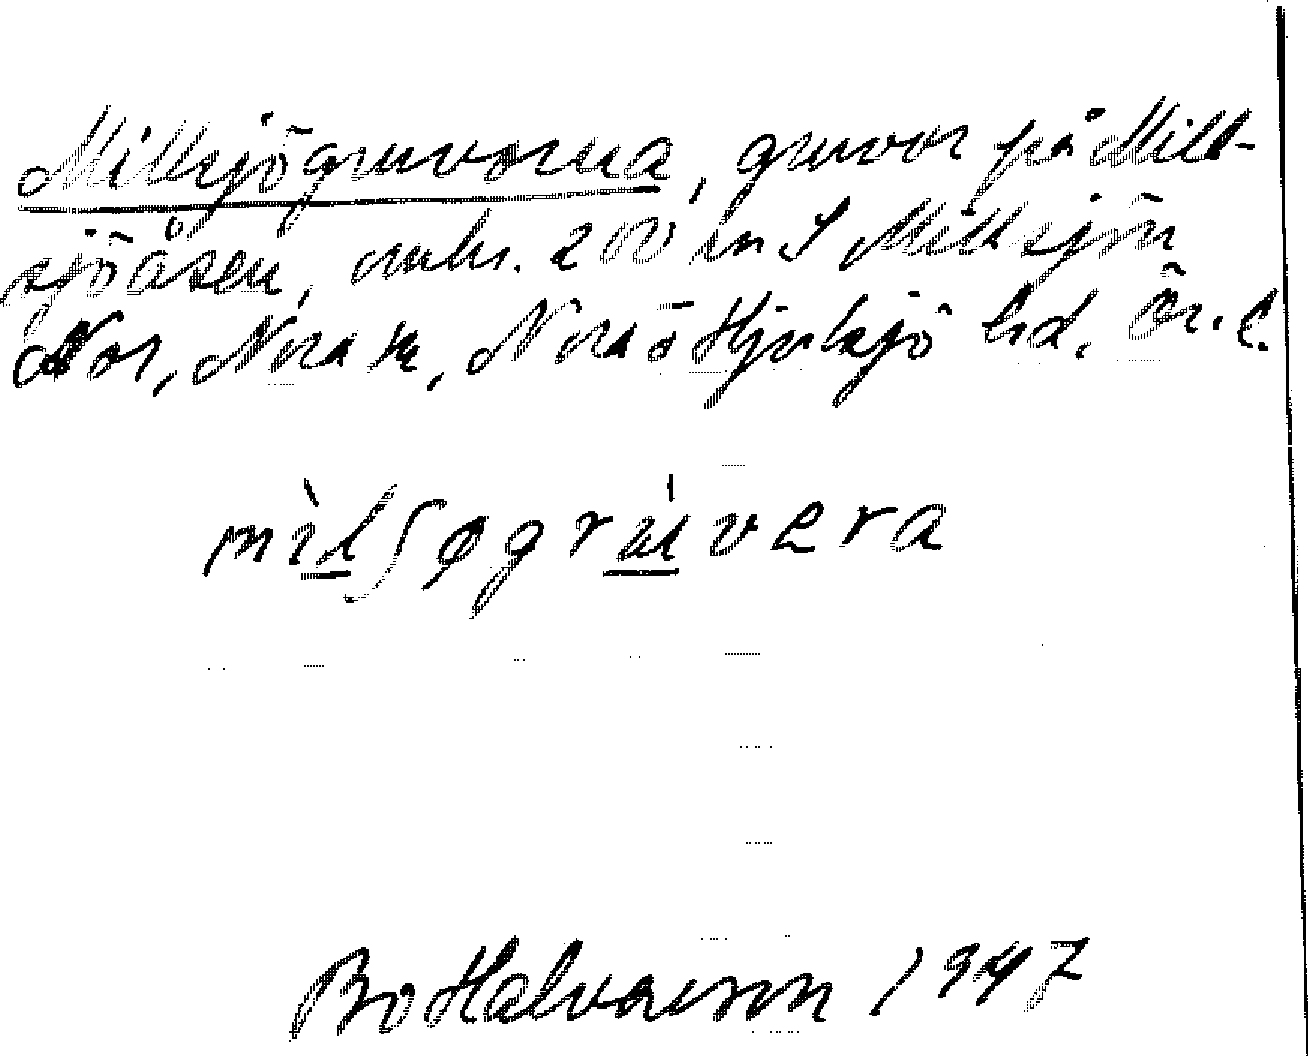 Millsjögruvorna, gruvor på Mill-
sjöåsen, omkr. 200 m S Millsjön
Nor, Nora sn, Nora o Hjulsjö hd. Ör. l.
mìlʃøgrúvera
Bo Halvarson 1947